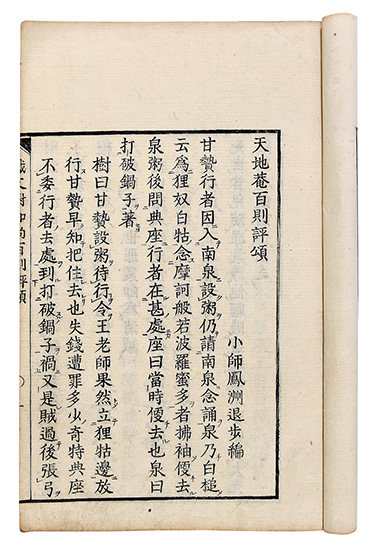 天地菴百則評頌
小師鳳洲退步編
甘贄行者因入南泉設粥仍請南泉念誦泉乃白槌
云爲狸奴白牯念摩訶般若波羅蜜多者拂袖便去
泉粥後問典座行者在甚處座曰當時便去也泉曰
打破鍋子著
樹曰甘贄設粥待行令王老師果然立狸牯邊放
行甘贄早知把住去也失錢遭罪多少奇特典座
不委行者去處到打破鍋子禍又是賊過後張弓
百則評頌